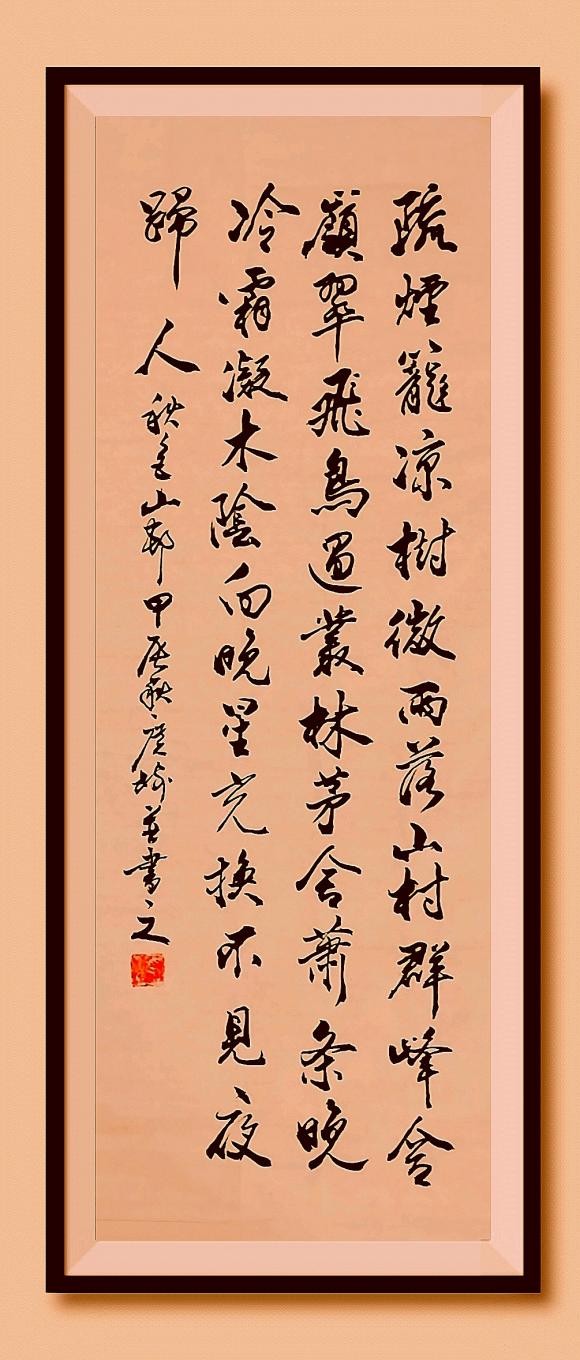 疏煙籠凉樹微雨落山村群峰含
翠飛鳥過叢林茅舍蕭条晚
冷霜凝木陰向晚星光換不見夜
歸人 秋山邨 甲辰秋 書之